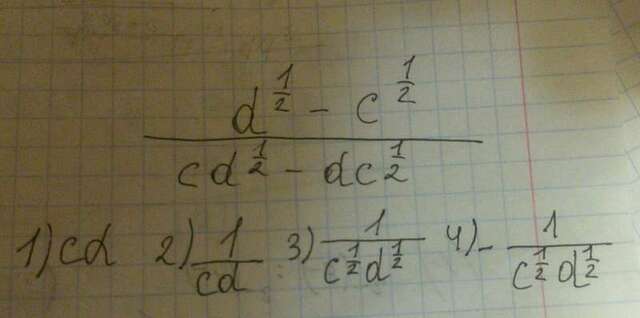 d^{1/2} - c^{1/2}
cd^{1/2} - dc^{1/2}
1) cd 2) 1/cd 3) 1/(c^{1/2}d^{1/2}) 4) - 1/(c^{1/2}d^{1/2})